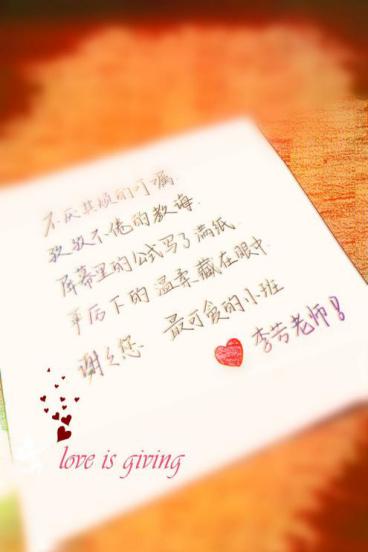 不厌其烦的叮嘱
孜孜不倦的教诲
屏幕里的公式写了满纸
平后下的温柔藏在眼中
谢谢您 最可爱的小班
李芳老师!
love is giving